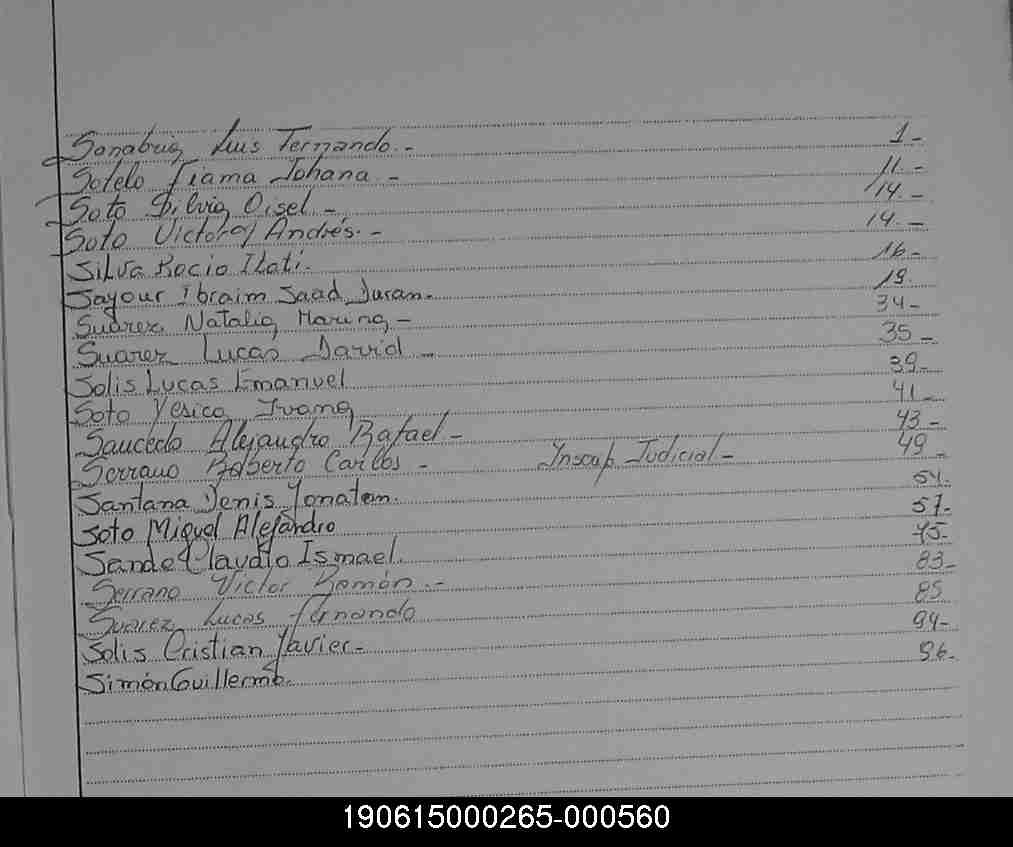 Sanabria, Luis Fernando.- 1-
Sotelo Fiama Johana - 11.-
Soto Silvia Gisel.- 14.-
Soto Victor Andrés.- 14.-
Silva Rocio Itatí. 16-
Sayour Ibraim Saad Duran. 19.
Suárez Natalia Marina,- 34-
Suarez Lucas David - 35-
Solis Lucas Emanuel 39-
Soto Yesica Ivana 41-
Saucedo Alejandro Rafael - 43-
Serrano Roberto Carlos - Inscrip Judicial - 49-
Santana Denis Jonatan. 54.
Soto Miguel Alejandro 57-
Sande Claudio Ismael. 75-
Serrano Victor Ramón.- 83-
Suarez Lucas Fernando 85
Solis Cristian Javier.- 94-
Simón Guillermo. 96-
190615000265-000560